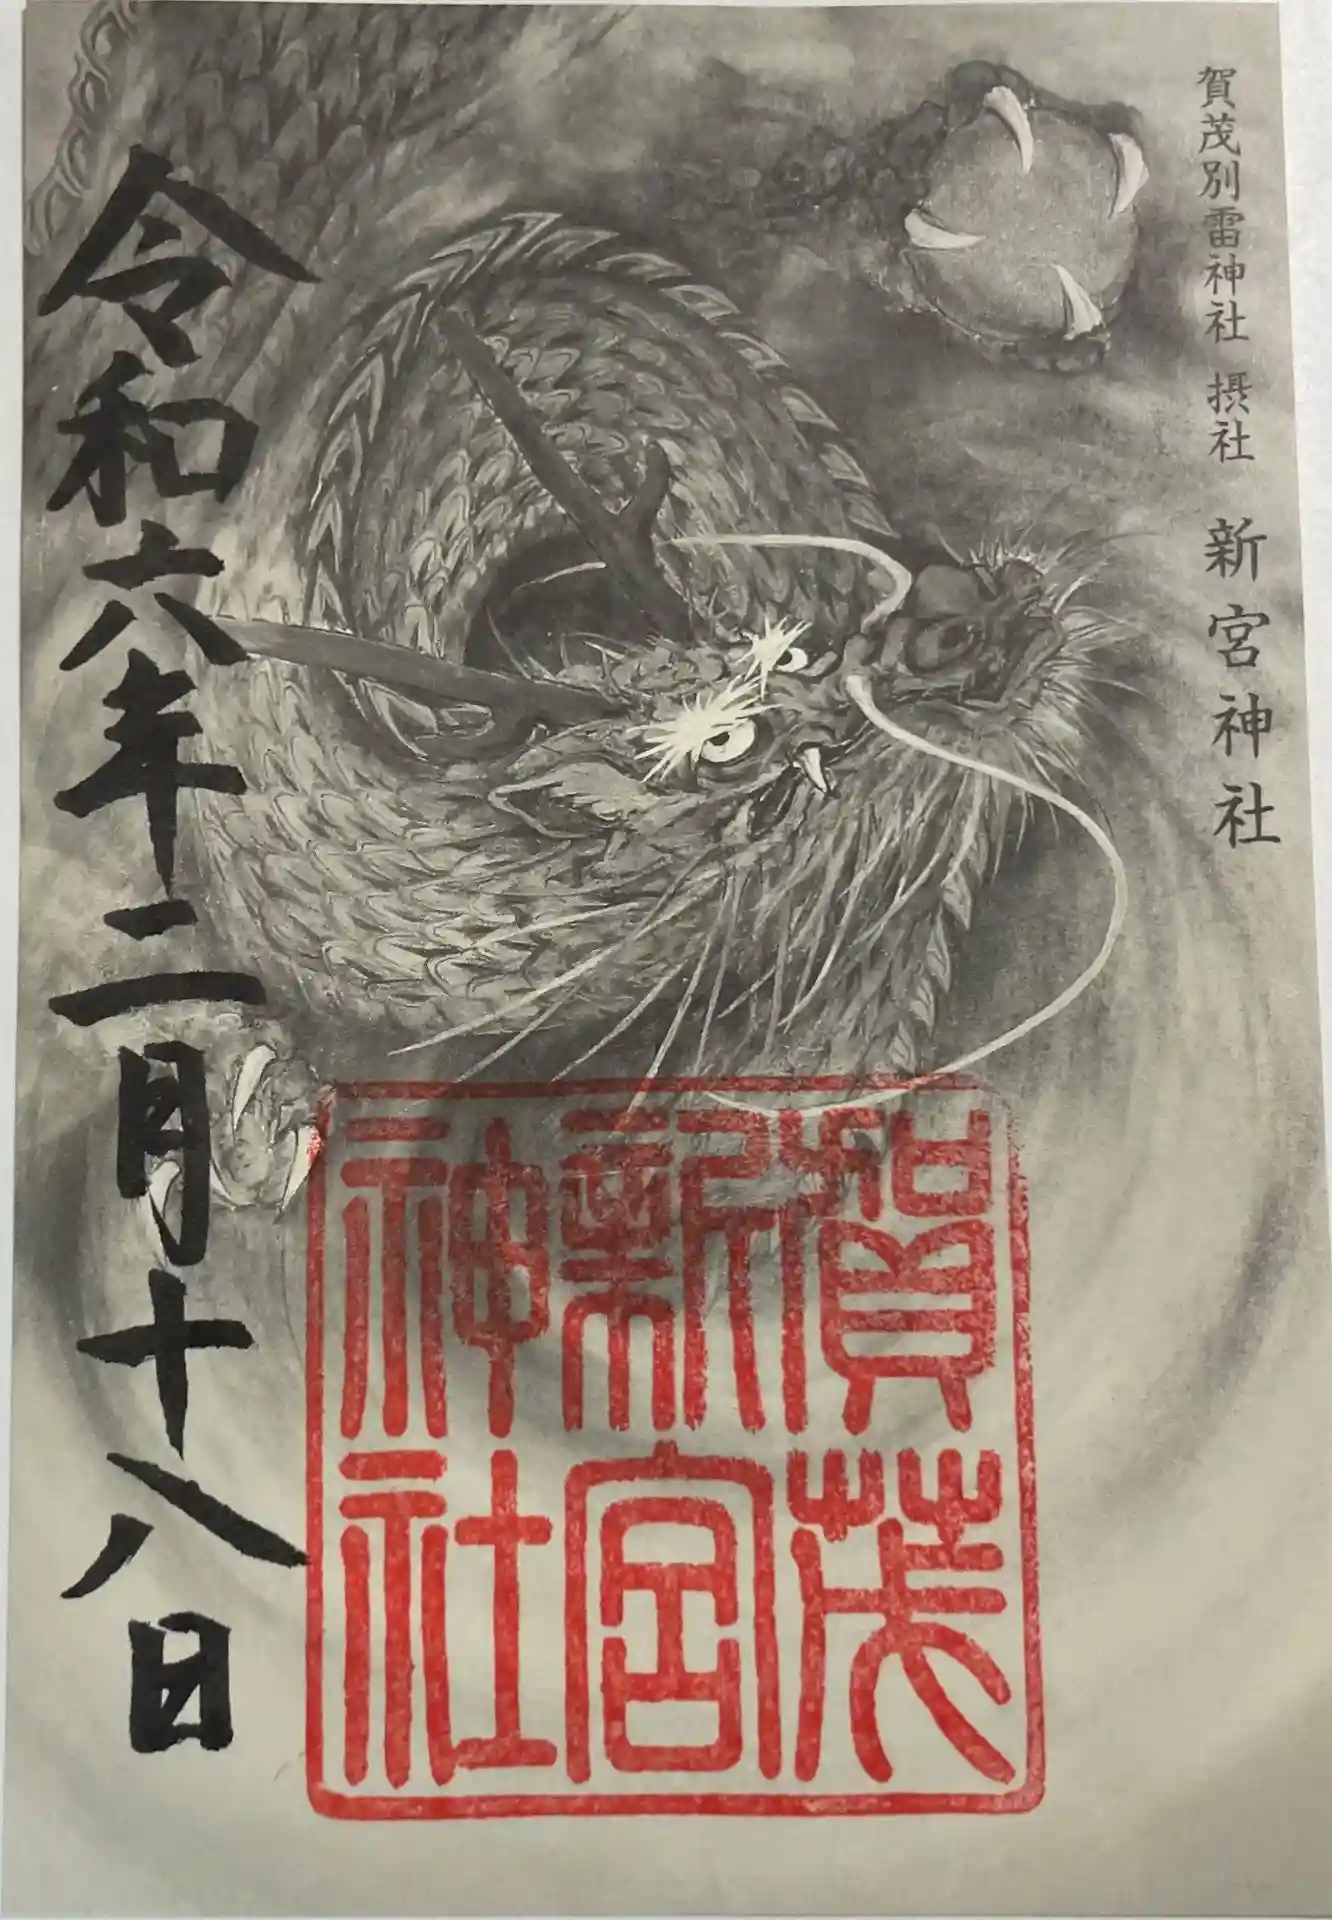 賀茂別雷神社 摂社 新宮神社
賀茂
新宮
神社
令和六年二月十八日